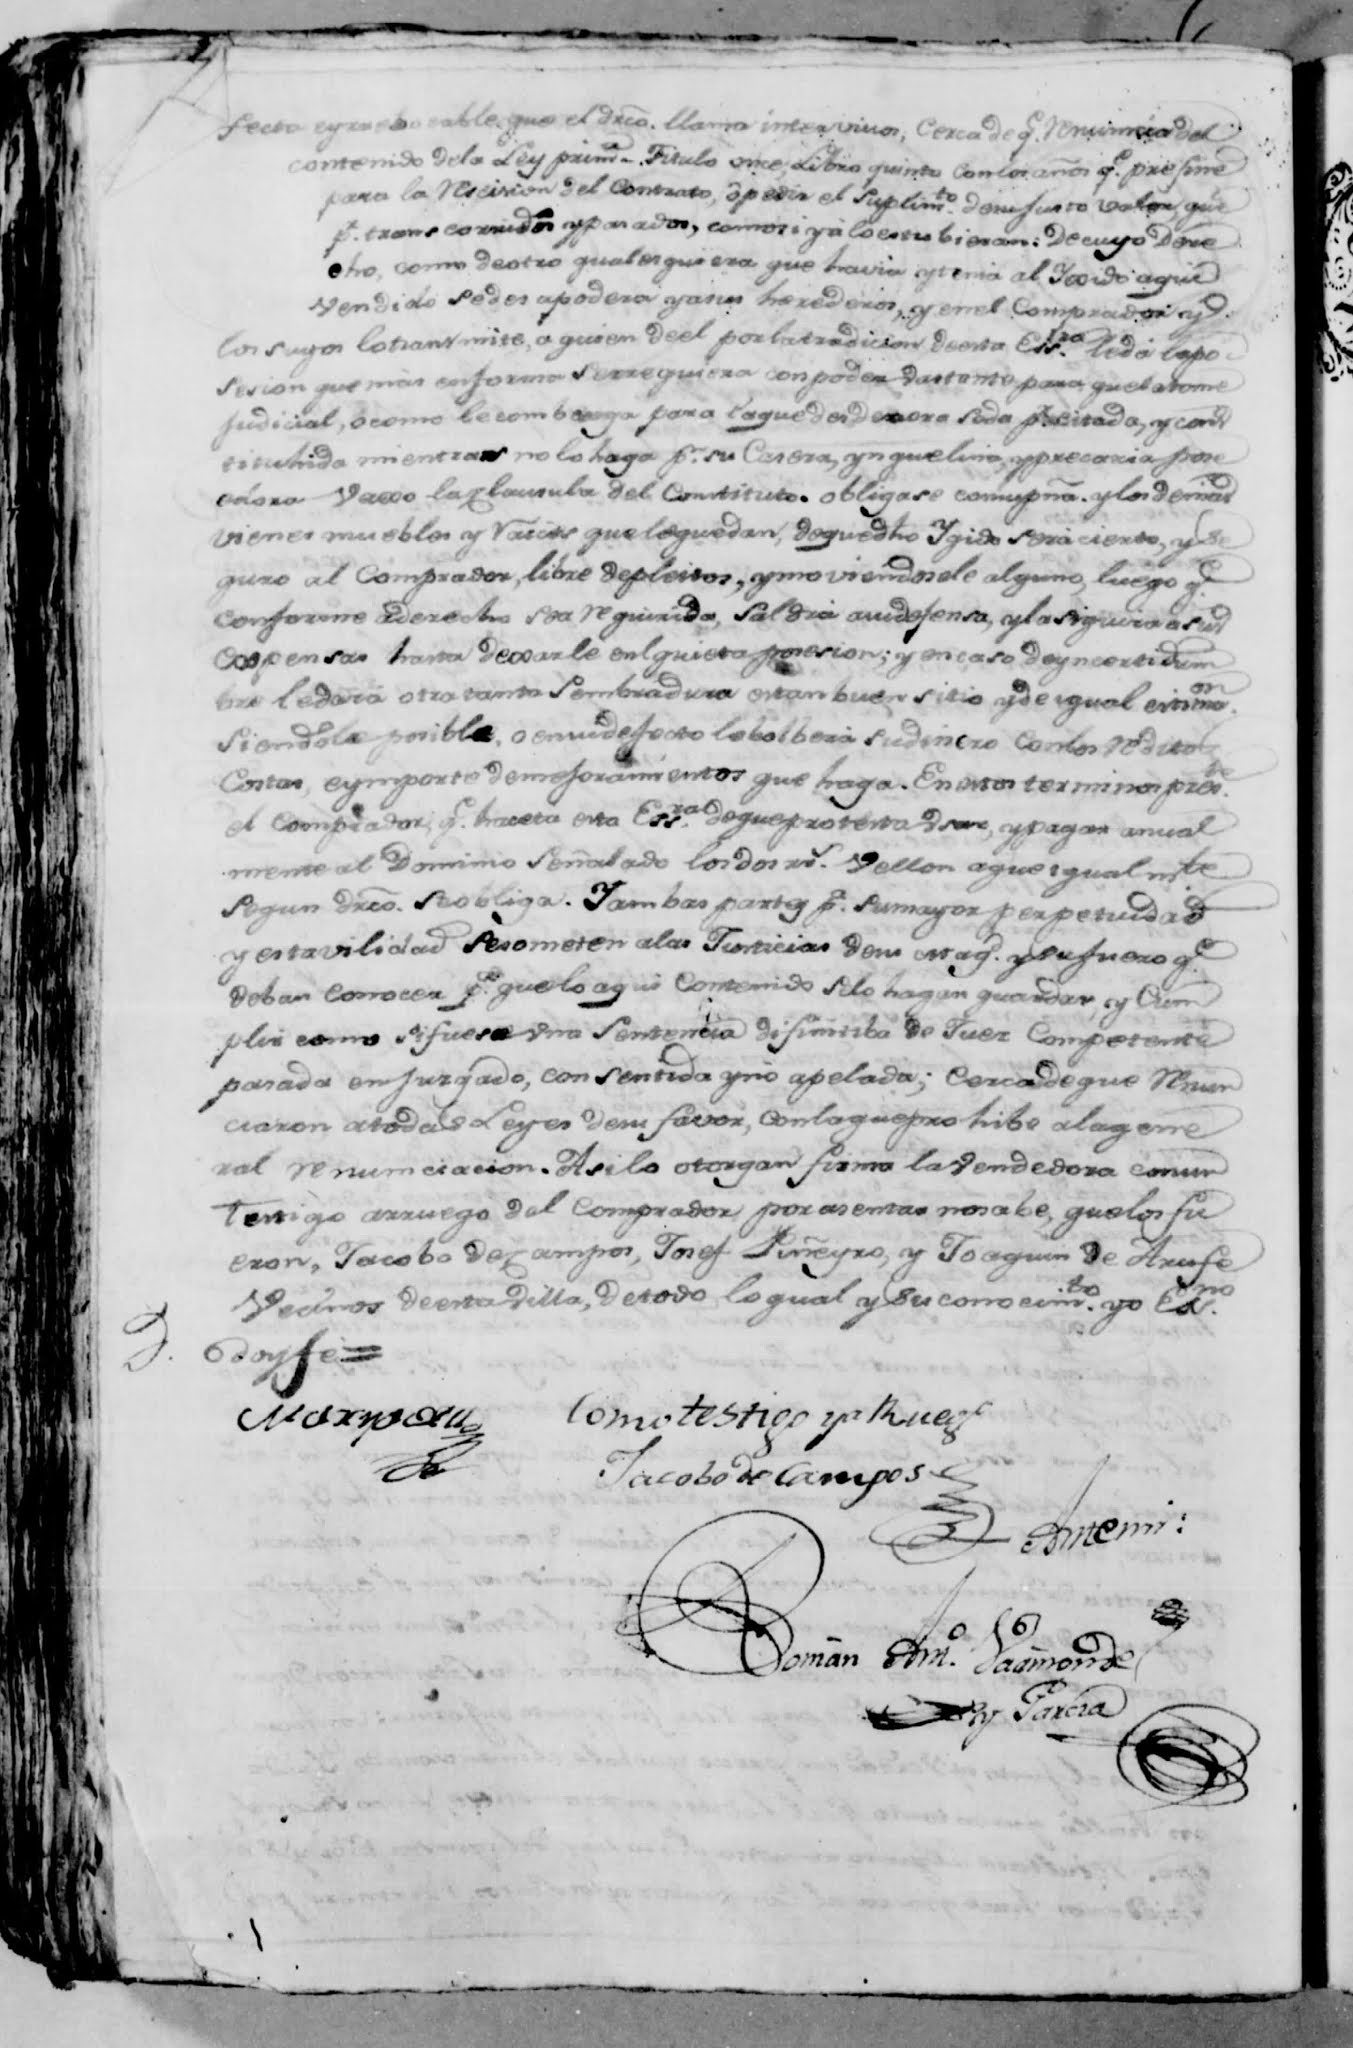 fecta eyrrebocable que el dr̃co. llama intervivos, cerca de q.e renuncia del
contenido de la Ley prim.a Titulo once, Libro quinto con los años q.e prefine
para la rescision del Contrato, ò pedir el suplim.to de su justo valor, que
p.r transcorridos y pasados, como si yà lo estubieran: De cuyo Dere
cho, como de otro qual esquiera que havia y tenia al Ygido aqui
vendido se desapodera y a sus herederos, y en el Comprador y
los suyos lo transmite, a quien de el por la tradicion de esta Ess.ra le dà la po
sesion que mas en forma se rrequiera con poder vastante para que la tome
Judicial, o como le combenga para la que desde aora se da p.r citada, y cons
tituhida mientras no lo haga p.r su Casera, ynquelina, y precaria pose
edora vaxo la clausula del Constituto. obligase con su p̃ña. y los demas
vienes muebles y raices que le quedan, de que dho Ygido serà cierto, y se
guro al Comprador, libre de pleitos, y moviendosele alguno, luego q.e
conforme a derecho sea requirida, saldrà a su defensa, y la siguirà a sus
expensas hasta dexarle en quieta posesion; y en caso de yncertidum
bre le darà otra tanta sembradura en tan buen sitio y de igual estima.on
siendole posible, o en su defecto le bolberà su dinero con los reditos
Costas, e ymporte de mejoramientos que haga. En estos terminos pres.te
el Comprador, q.e haceta esta Ess.ra de que protesta usar, y pagar anual
mente al Dominio señalado los dos rr.s vellon a que igualm.te
segun dr̃co. se obliga. Y ambas partes p.a su mayor perpetuidad
y estavilidad se someten a las Justicias de su Mag.d y su fuero q.e
deban conocer p.a que lo aqui Contenido se lo hagan guardar, y Cum
plir como si fuese una Sentencia difinitiba de Juez Competente
pasada en Juzgado, consentida y no apelada; cerca de que renun
ciaron a todas Leyes de su favor, con la que prohibe a la gene
ral renunciacion. Asi lo otorgan firma la vendedora con un
testigo arruego del Comprador por asentar no sabe, que los fu
eron, Jacobo de Campos, Josef Piñeyro, y Joaquin de Arufe
Vecinos de esta Villa, de todo lo qual y su conocim.to yo Es.no
doy fè =
Como testigo y a Ruego
Jacobo de Campos
Antemi:
Domin Ant.o Vaamonde
y Garcia